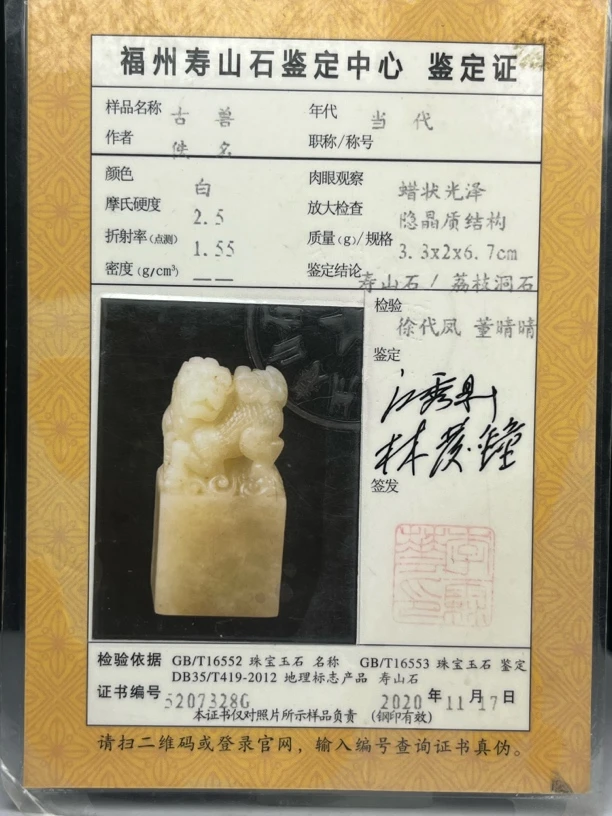 福州寿山石鉴定中心 鉴定证
样品名称 古兽 年代 当代
作者 佚名 职称/称号
颜色 白 肉眼观察 蜡状光泽
摩氏硬度 2.5 放大检查 隐晶质结构
折射率(点测) 1.55 质量(g)/规格 3.3x2x6.7cm
密度(g/cm³) —— 鉴定结论 寿山石/荔枝洞石
检验
徐代凤 董晴晴
鉴定
签发
检验依据 GB/T16552 珠宝玉石 名称 GB/T16553 珠宝玉石 鉴定
DB35/T419-2012 地理标志产品 寿山石
证书编号 5207328G 2020年11月17日
本证书仅对照片所示样品负责 (钢印有效)
请扫二维码或登录官网，输入编号查询证书真伪。